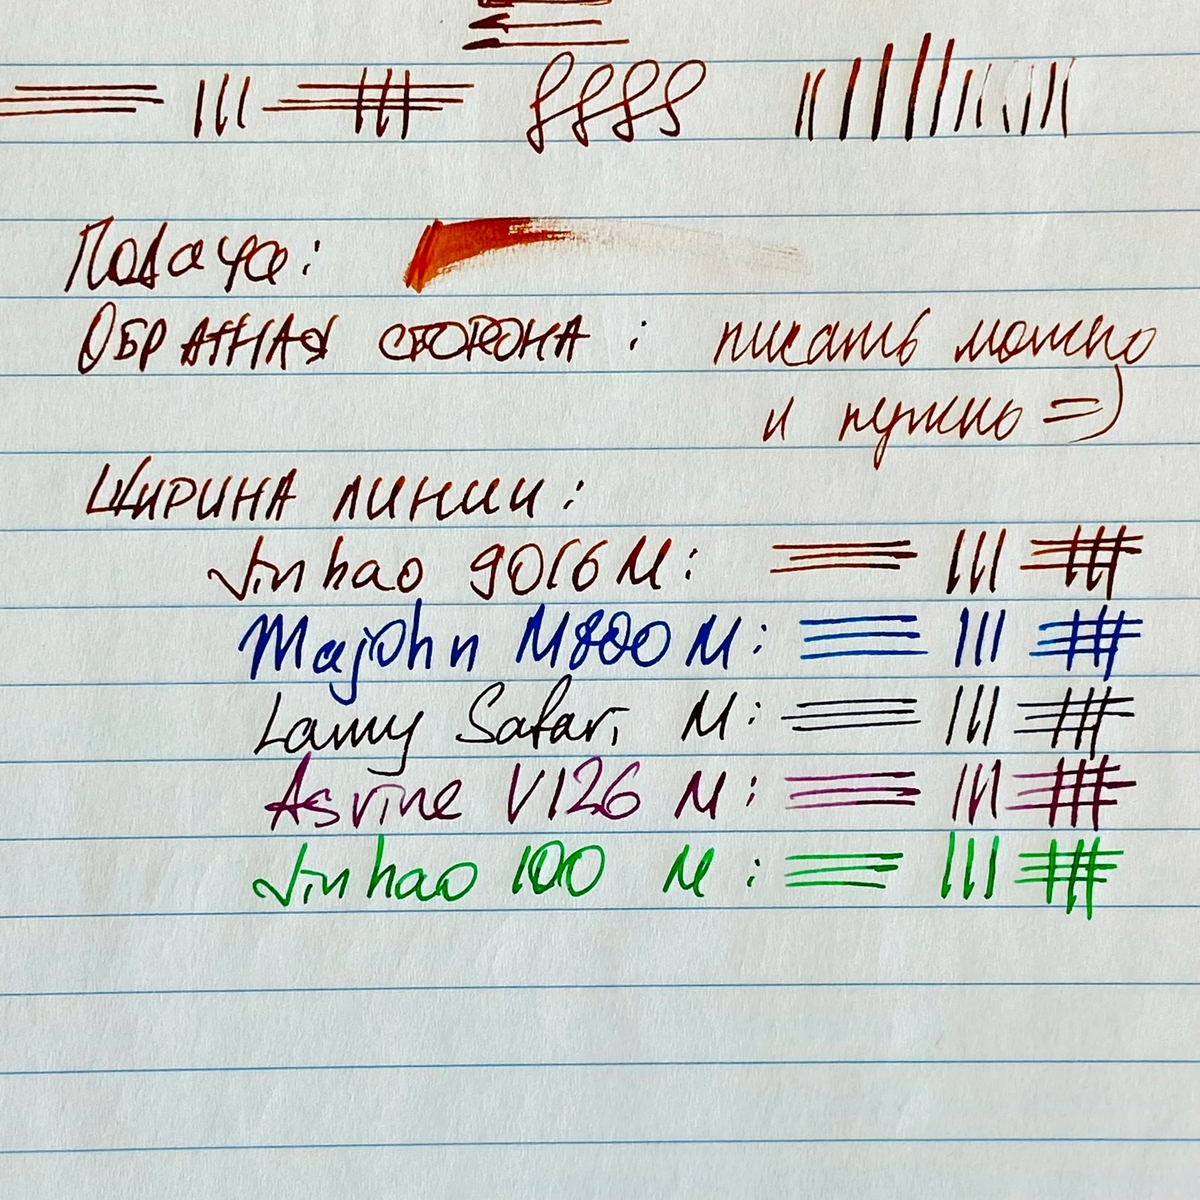 Подача:
ОБРАТНАЯ СТОРОНА: писать можно
и нужно =)
ШИРИНА ЛИНИИ:
Jinhao 9016 M:
Majohn M800 M:
Lamy Safari M:
Asvine V126 M:
Jinhao 100 M: